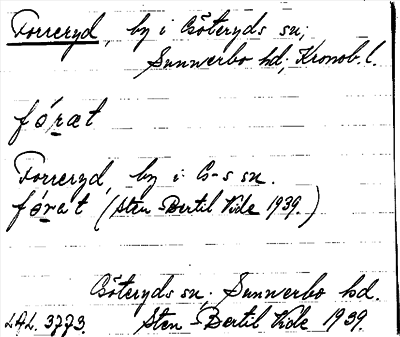 Forreryd, by i Göteryds sn;
Sunnerbo hd; Kronob. l.
fóræt
Forreryd, by i G-s sn.
fórat (Sten-Bertil Vide 1939.)
Göteryds sn; Sunnerbo hd.
LAL. 3773. Sten-Bertil Vide 1939.